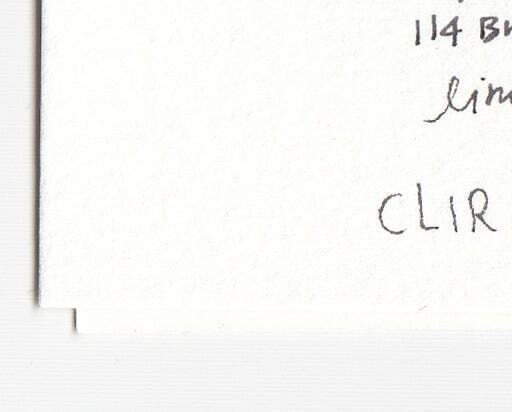 114 B
lin
CLIR